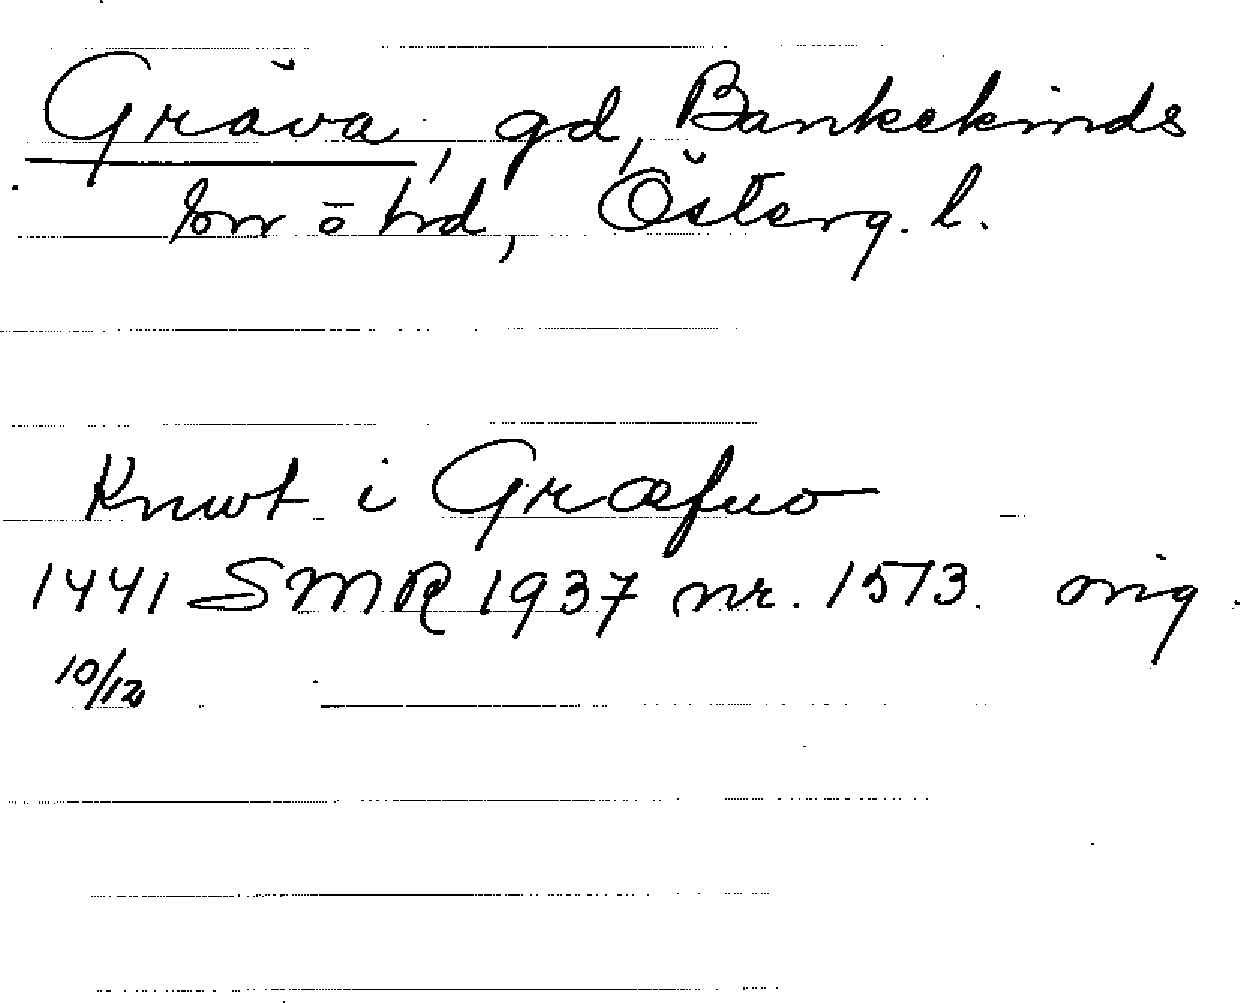 Gräva, gd, Bankekinds
sn o hd, Österg. l.
Knwt i Græfuo
1441 SMR 1937 nr. 1513. orig.
10/12